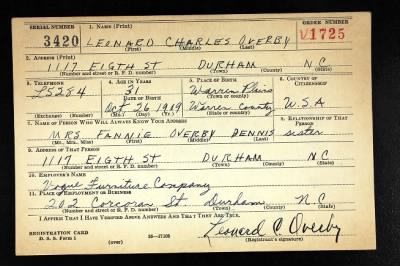 SERIAL NUMBER 1. NAME (Print) ORDER NUMBER
3420 LEONARD CHARLES OVERBY V1725
(First) (Middle) (Last)
2. ADDRESS (Print)
1117 EIGTH ST DURHAM N C
(Number and street or R. F. D. number) (Town) (County) (State)
3. TELEPHONE 4. AGE IN YEARS 5. PLACE OF BIRTH 6. COUNTRY OF CITIZENSHIP
L5284 31 Warren Plains
DATE OF BIRTH (Town or county)
Oct. 26 1919 Warren County U.S.A
(Exchange) (Number) (Mo.) (Day) (Yr.) (State or country)
7. NAME OF PERSON WHO WILL ALWAYS KNOW YOUR ADDRESS 8. RELATIONSHIP OF THAT PERSON
MRS. FANNIG OVERBY DENNIS sister
(Mr., Mrs., Miss) (First) (Middle) (Last)
9. ADDRESS OF THAT PERSON
1117 EIGTH ST DURHAM N.C
(Number and street or R. F. D. number) (Town) (County) (State)
10. EMPLOYER'S NAME
Vogue Furniture Company
11. PLACE OF EMPLOYMENT OR BUSINESS
202 Corcoran St. Durham N.C
(Number and street or R. F. D. number) (Town) (County) (State)
I AFFIRM THAT I HAVE VERIFIED ABOVE ANSWERS AND THAT THEY ARE TRUE.
REGISTRATION CARD Leonard C. Overby
D. S. S. Form 1 (over) (Registrant's signature)